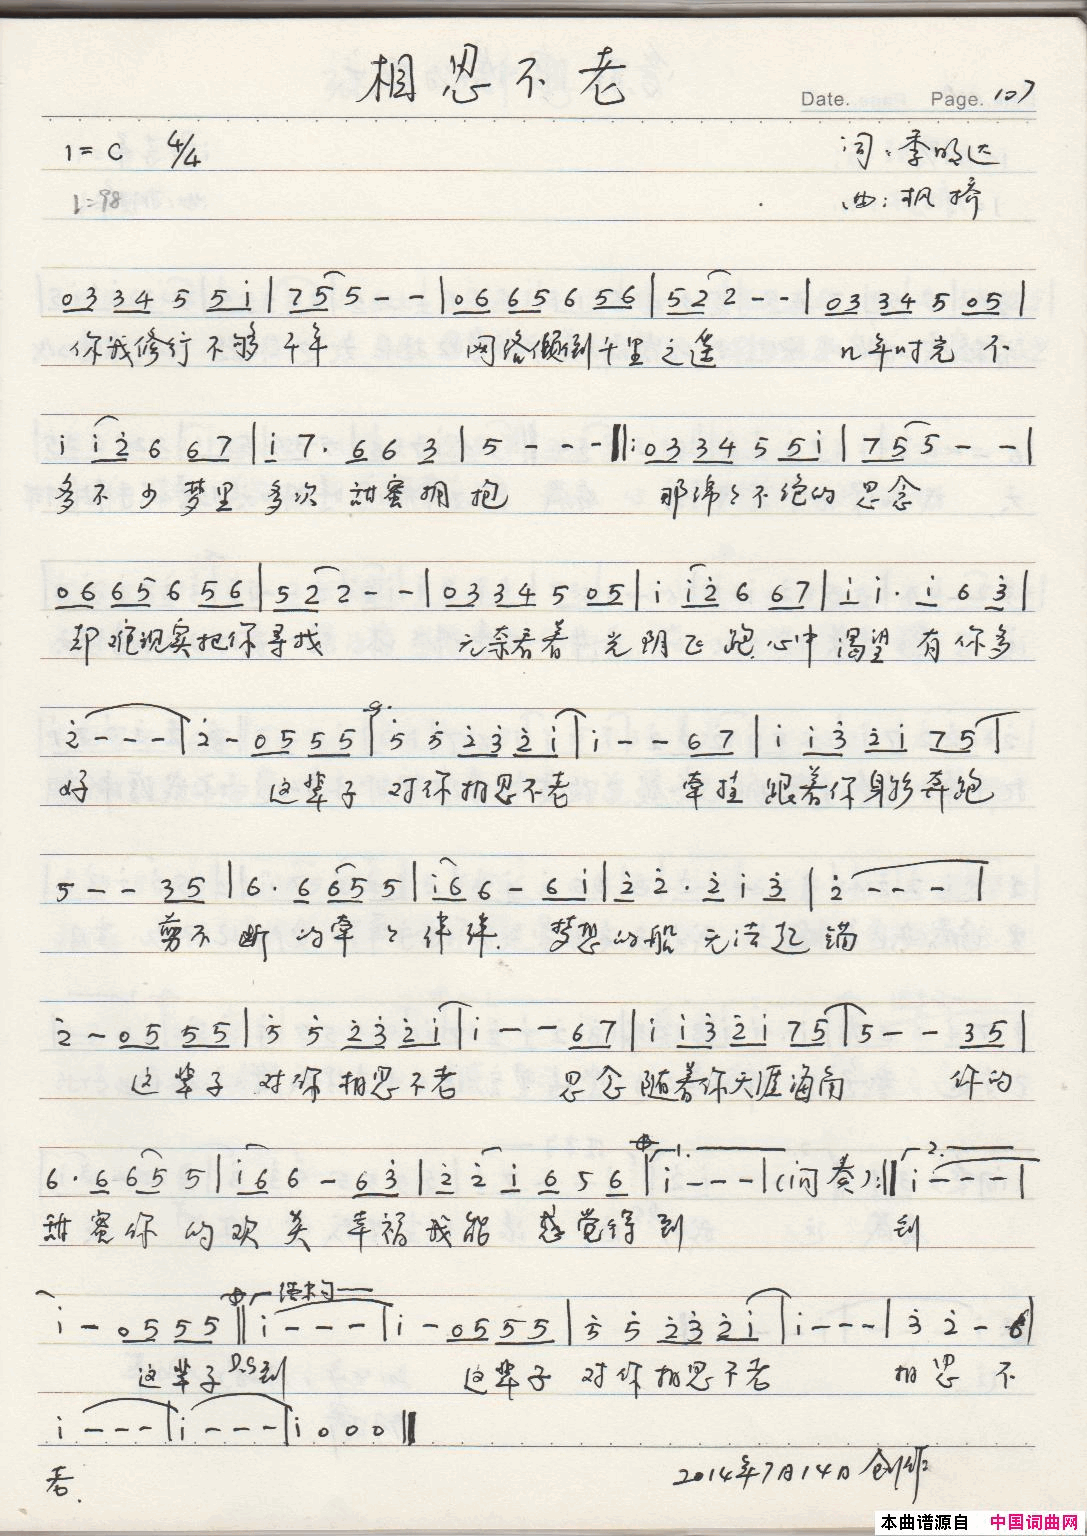 相思不老
Date. Page. 107
1=C 4/4
词:季明达
♩=98
曲:枫桥
0 3 3 4 5 5 i | 7 5 5 - - | 0 6 6 5 6 5 6 | 5 2 2 - - | 0 3 3 4 5 0 5 |
你我修行不够千年 网络倾倒千里之遥 几年时光 不
i i 2 6 6 7 | i 7 · 6 6 3 | 5 - - - ‖: 0 3 3 4 5 5 i | 7 5 5 - - |
多不少 梦里 多次 甜蜜拥抱 那绵々不绝的思念
0 6 6 5 6 5 6 | 5 2 2 - - | 0 3 3 4 5 0 5 | i i 2 6 6 7 | i i · i 6 3 |
却难现实把你寻找 无奈看着 光阴飞跑 心中渴望 有你多
2 - - - | 2 - 0 5 5 5 | 5 5 2 3 2 i | i - - 6 7 | i i 3 2 i 7 5 |
好 这辈子 对你相思不老 牵挂 跟着你身影奔跑
5 - - 3 5 | 6 · 6 6 5 5 | i 6 6 - 6 i | 2 2 · 2 i 3 | 2 - - - |
剪不断 的牵々绊绊 梦想的船 无法起锚
2 - 0 5 5 5 | 5 5 2 3 2 i | i - - 6 7 | i i 3 2 i 7 5 | 5 - - 3 5 |
这辈子 对你相思不老 思念 随着你天涯海角 你的
6 · 6 6 5 5 | i 6 6 - 6 3 | 2 2 i 6 5 6 | 1. i - - - | (间奏) :‖ 2. i - - - |
甜蜜你 的欢笑 幸福我能 感觉得到 到
i - 0 5 5 5 ‖ 结束句 i - - - | i - 0 5 5 5 | 5 5 2 3 2 i | i - - - | 3 2 - 6 |
这辈子 D.S 到 这辈子 对你相思不老 相思 不
i - - - | i - - - | i 0 0 0 ‖
老.
2014年7月14日创作
本曲谱源自 中国词曲网